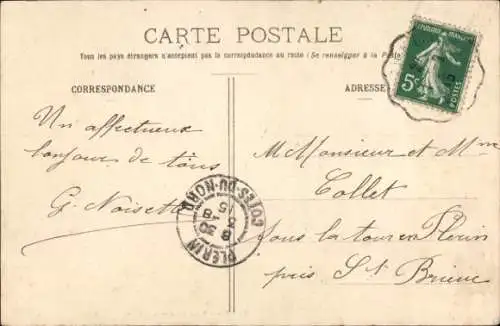 CARTE POSTALE
Tous les pays étrangers n'acceptent pas la correspondance au recto (Se renseigner à la Poste
CORRESPONDANCE
ADRESSE
RÉPUBLIQUE FRANÇAISE
5c
POSTES
Un affectueux
bonjour de tous
G. Noisette
M Monsieur et Mme
Collet
Sous la tour en Plerin
près St Brieuc
PLÉRIN
CÔTES-DU-NORD